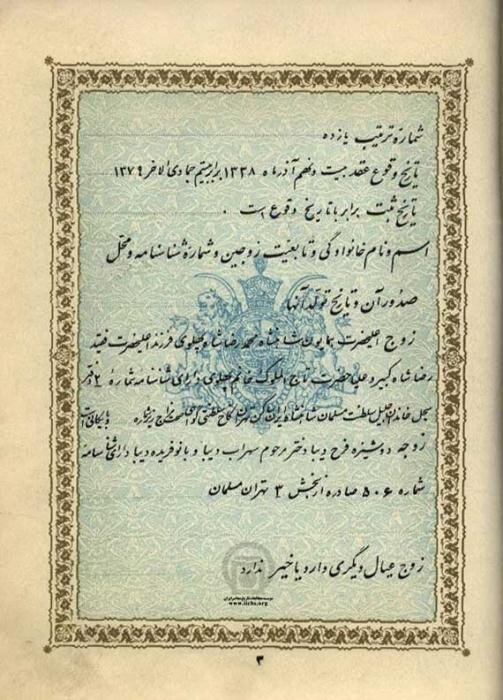 شماره ترتیب یازده
تاریخ وقوع عقد بیست و نهم آذر ماه ۱۳۳۸ برابر بیستم جمادی الاخر ۱۳۷۹
تاریخ ثبت برابر با تاریخ وقوع است .
اسم و نام خانوادگی و تابعیت زوجین و شماره شناسنامه و محل
صدور آن و تاریخ تولد آنها
زوج اعلیحضرت همایون شاهنشاه محمد رضا شاه پهلوی فرزند اعلیحضرت فقید
رضا شاه کبیر و علیاحضرت تاج الملوک خانم پهلوی دارای شناسنامه شماره ۲ دفتر
سجل خاندان جلیل سلطنت مسلمان شاهنشاه ایران ساکن تهران کاخ سلطنتی
زوجه دوشیزه فرح دیبا دختر مرحوم سهراب دیبا و بانو فریده دیبا دارای شناسنامه
شماره ۵۰۶ صادره از بخش ۳ تهران مسلمان
زوج عیال دیگری دارد یا خیر ندارد
www.iichs.org
۳